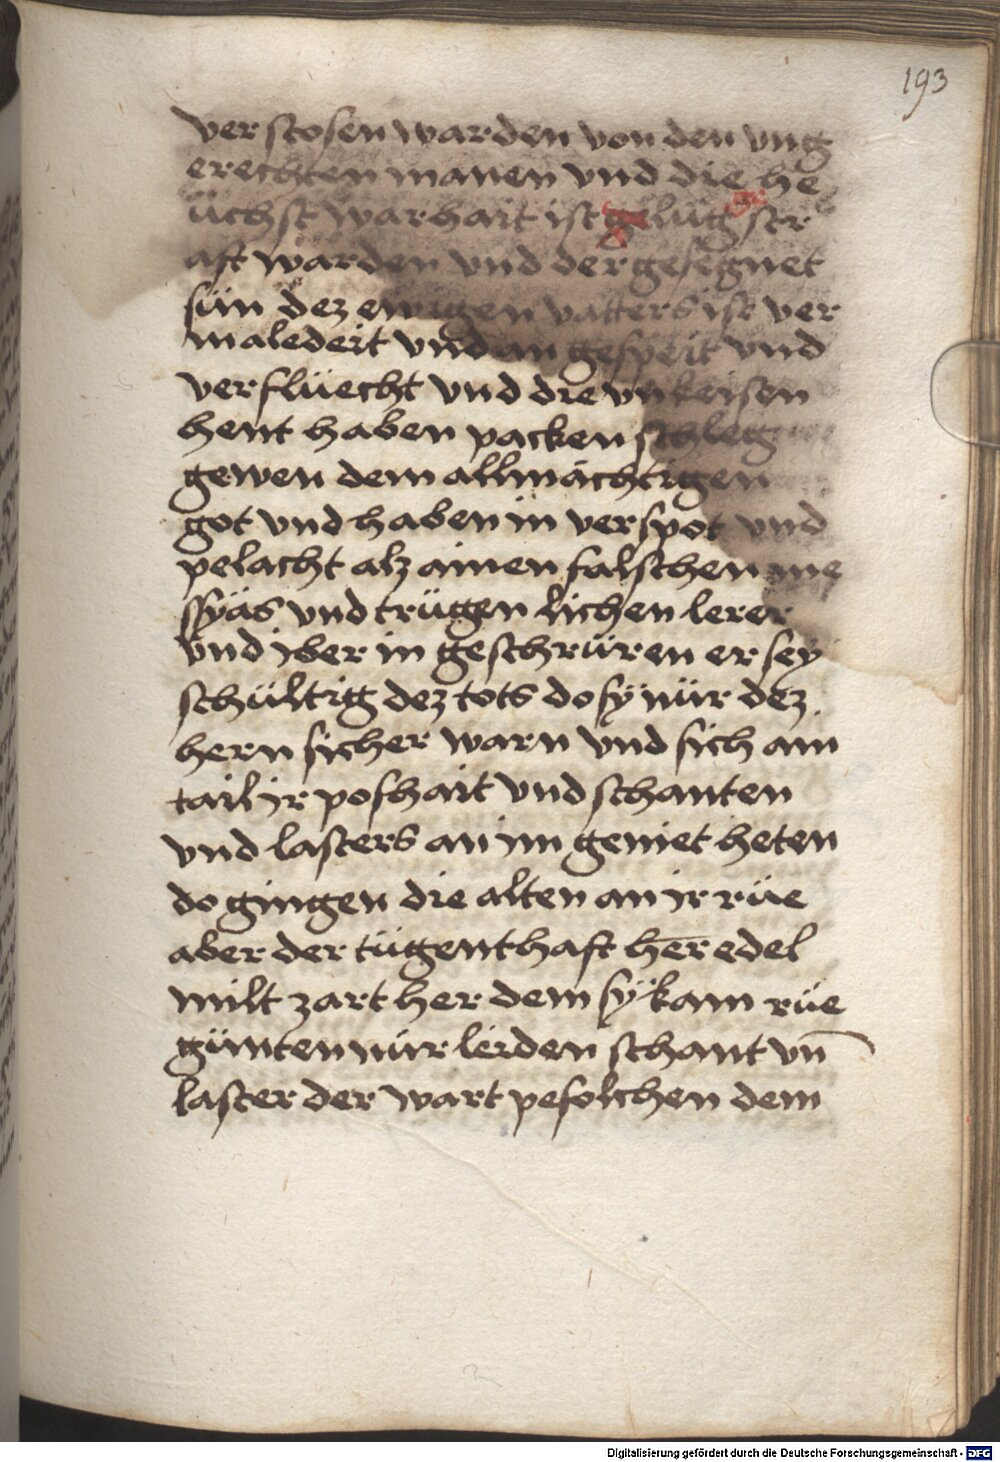 193
verstosen warden von den vng
erechten manen vnd die he
üchst warhait ist gelüg str
aft warden vnd der gesegnet
sün dez ewigen vatters ist ver
maledeit vnd an gespeit vnd
verflüecht vnd die vnkeisen
hent haben packen schleg
gewen dem allmächtigen
got vnd haben in verspot vnd
pelacht alz ainen falschen me
ssyäs vnd trügen lichen lerer
vnd jber in geschrüren er sey
schültig dez tots do sÿ nür dez
hern sicher warn vnd sich ain
tail jr poshait vnd schanten
vnd lasters an im geniet heten
do gingen die alten an jr rüe
aber der tügenthaft her̄ edel
milt zart her dem sÿ kam rüe
günten nür leiden schant vn̄
laster der wart pefolchen dem
Digitalisierung gefördert durch die Deutsche Forschungsgemeinschaft - DFG